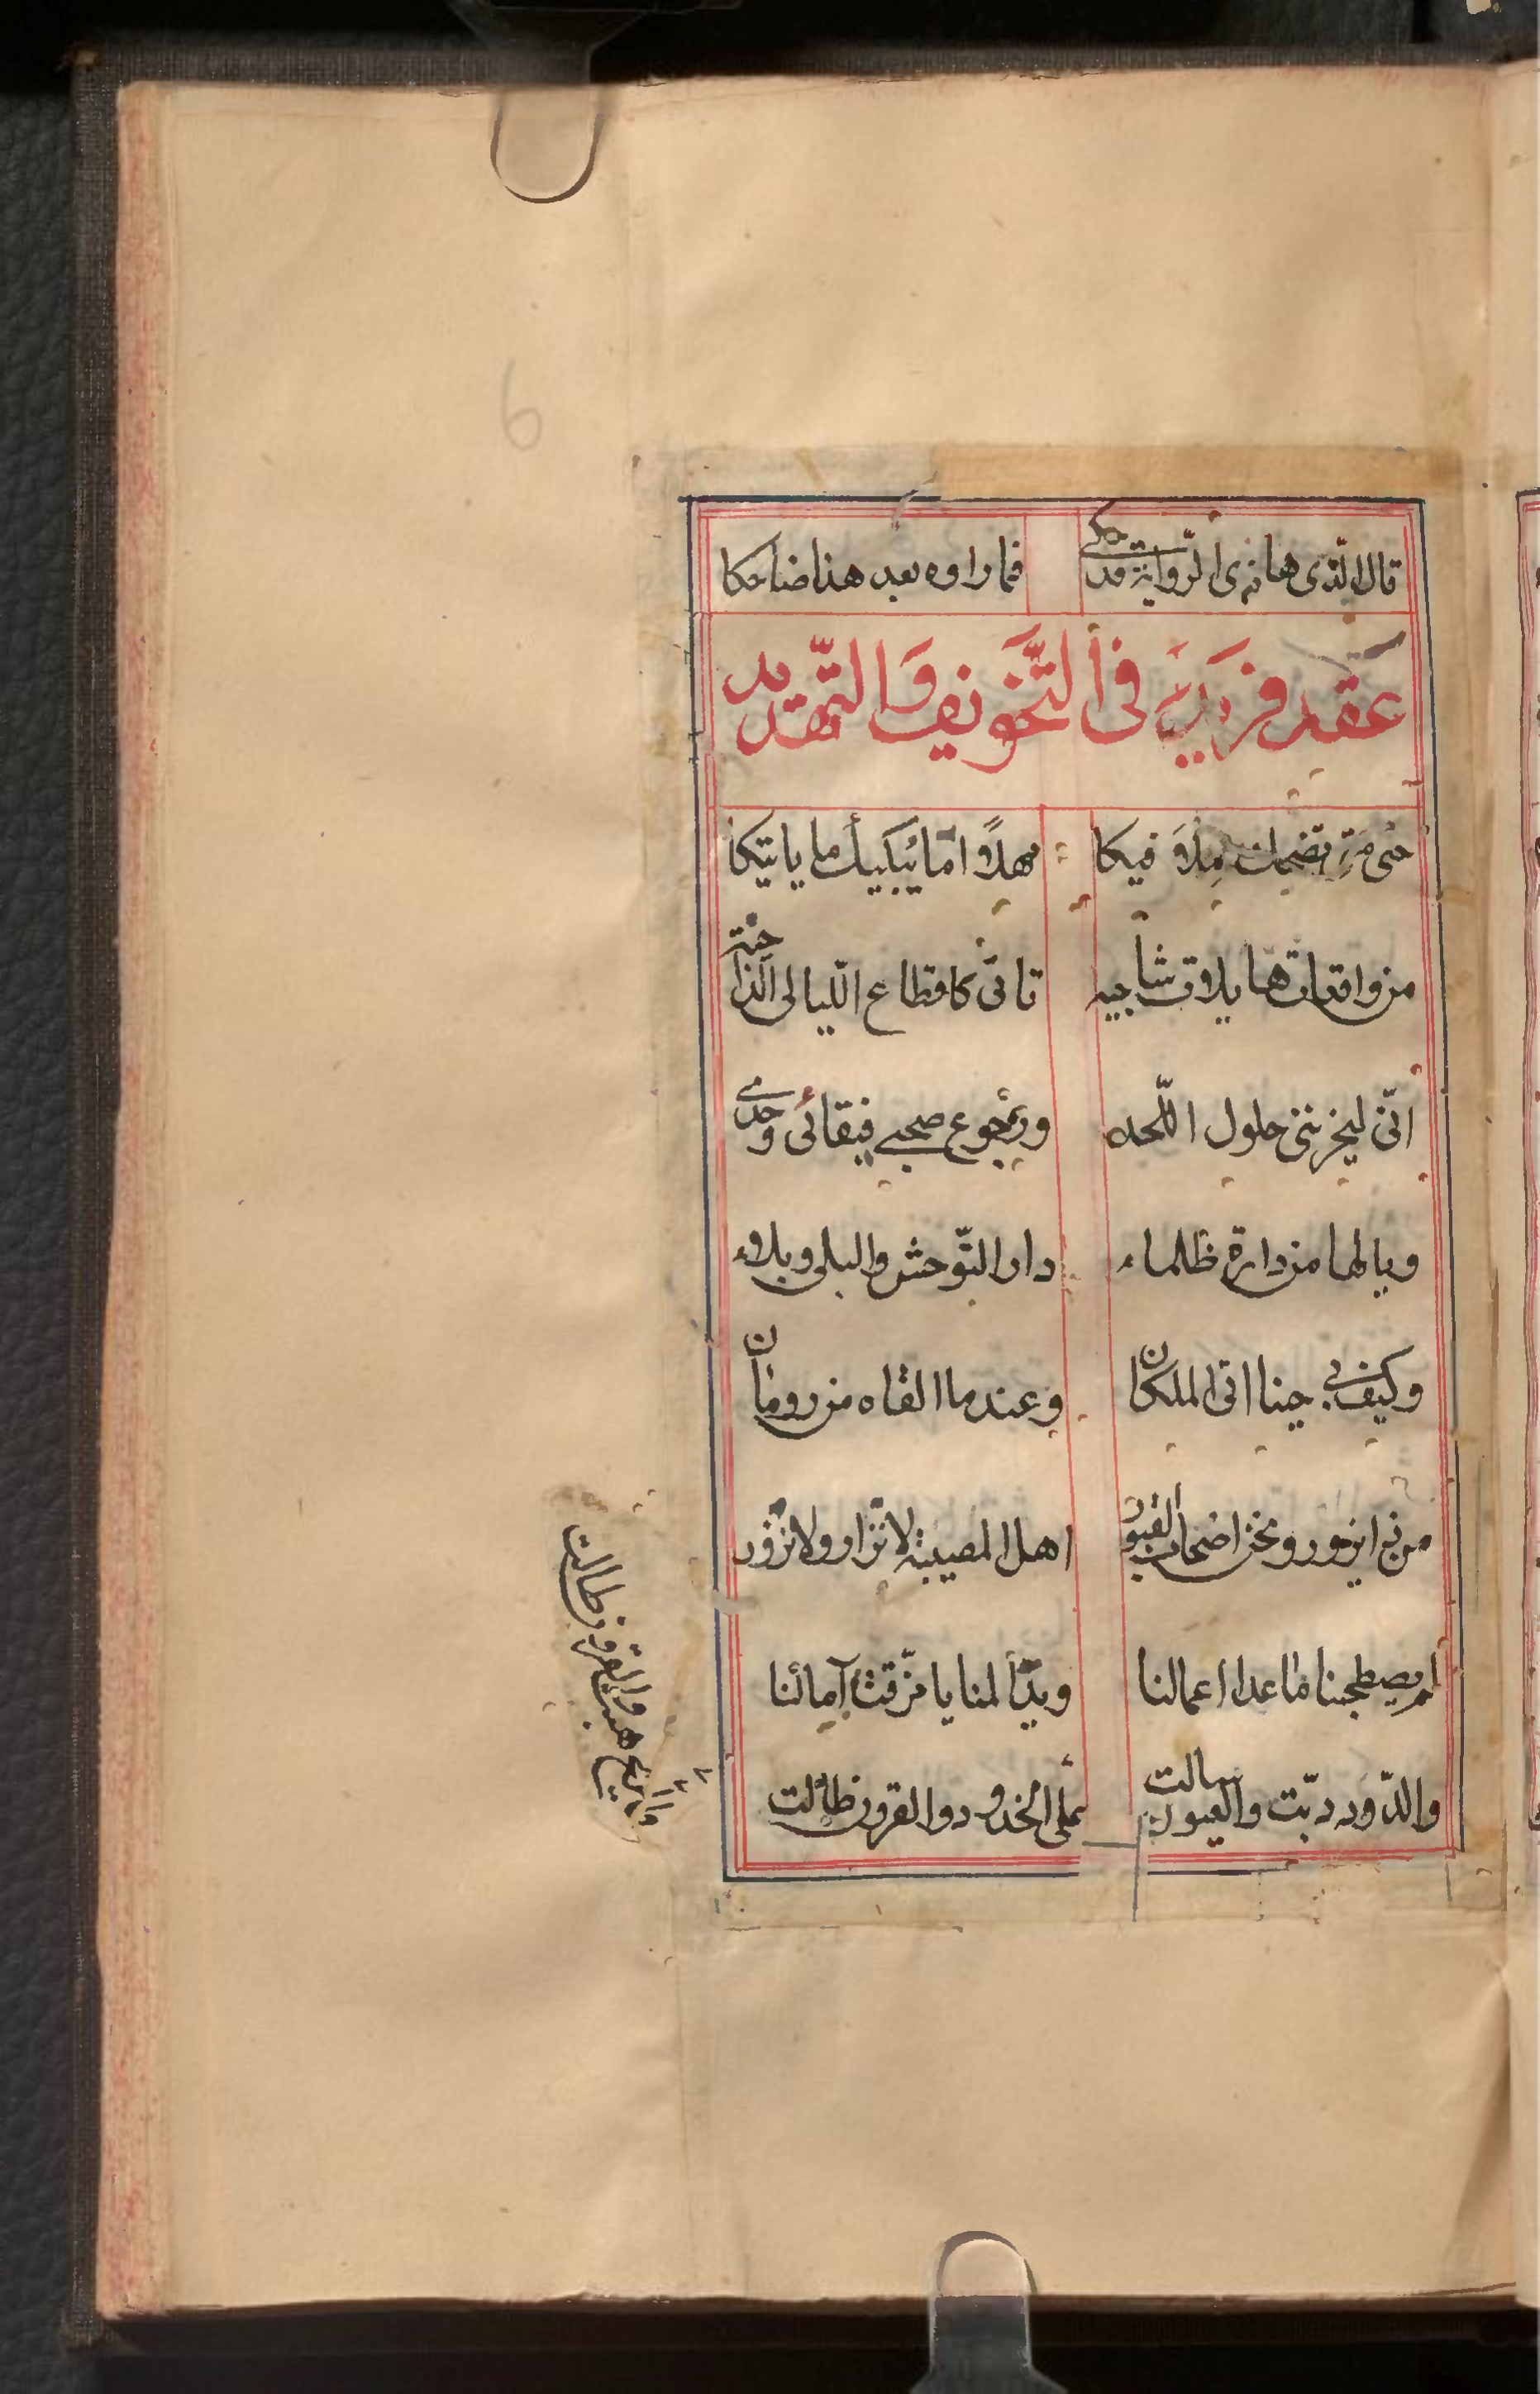 قال الّذى هانم ى الرّواية قد حكى فما راوه بعد هذا ضاحكا
عقد فريد في التّخويف والتّهديد
حتى متى تضحك ملأ فيكا مهلًا اما يبكيك ما ياتيكا
من واقعات ها يلات شاجيه تاتى كاقطاع اللّيالى الداجية
انّى ليحزننى حلول اللّحد ورجوع صحبى فبقائى وحدى
ويالها من دارة ظلماء دار التّوحش والبلى وبلاء
وكيف بى حينا اتى الملكان وعند ما القاه من رومان
من ذا يزور ونحن اصحاب القبور اهل المصيبة لا نزار ولا نزور
لم يصطحبنا ما عدا اعمالنا ويد المنايا مزّقت آمالنا
والدّود دبّت والعيون سالت على الخدود والقرون طالت
والريح هبت والقرون طالت
6